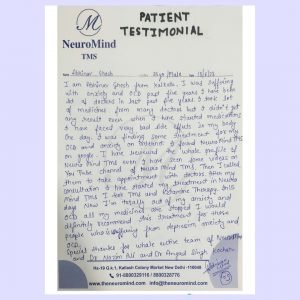 M
NeuroMind
TMS
PATIENT
TESTIMONIAL
I am Abhinav Ghosh from Kolkata. I was suffering
with anxiety and OCD past five years I have been
lot of doctors in last and five years I took lot
of medicines from many doctors but I didn't get
any result even when I have started medications
I have faced very bad side effects in my body
One day I was finding some treatment for my
OCD and anxiety on I found Neuro Mind TMS
on google. I have reviewed the whole profile of
Neuro Mind TMS even I have seen some videos on
You Tube channel of Neuro Mind TMS. Then I called
them to take appointment with doctors. After my
consultation I have started my treatment in Neuro
Mind TMS I took TMS and Ketamine Therapy.
days. Now I'm totally out of my anxiety and
OCD all my medicines are stopped I would
definitely recommend this treatment for those
people who is suffering from depression, anxiety and
OCD.
Special thanks for whole entire team of
and Dr. and Dr. Angad Singh
Hs-19 G.k.1, Kailash Colony Market New Delhi -110048
91-8800329116 / 8800228776
info@theneuromind.com | www.theneuromind.com